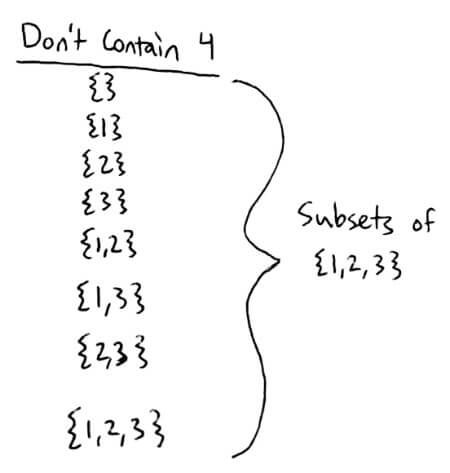 Don't Contain 4
{}
{1}
{2}
{3}
{1,2}
{1,3}
{2,3}
{1,2,3}
Subsets of
{1,2,3}